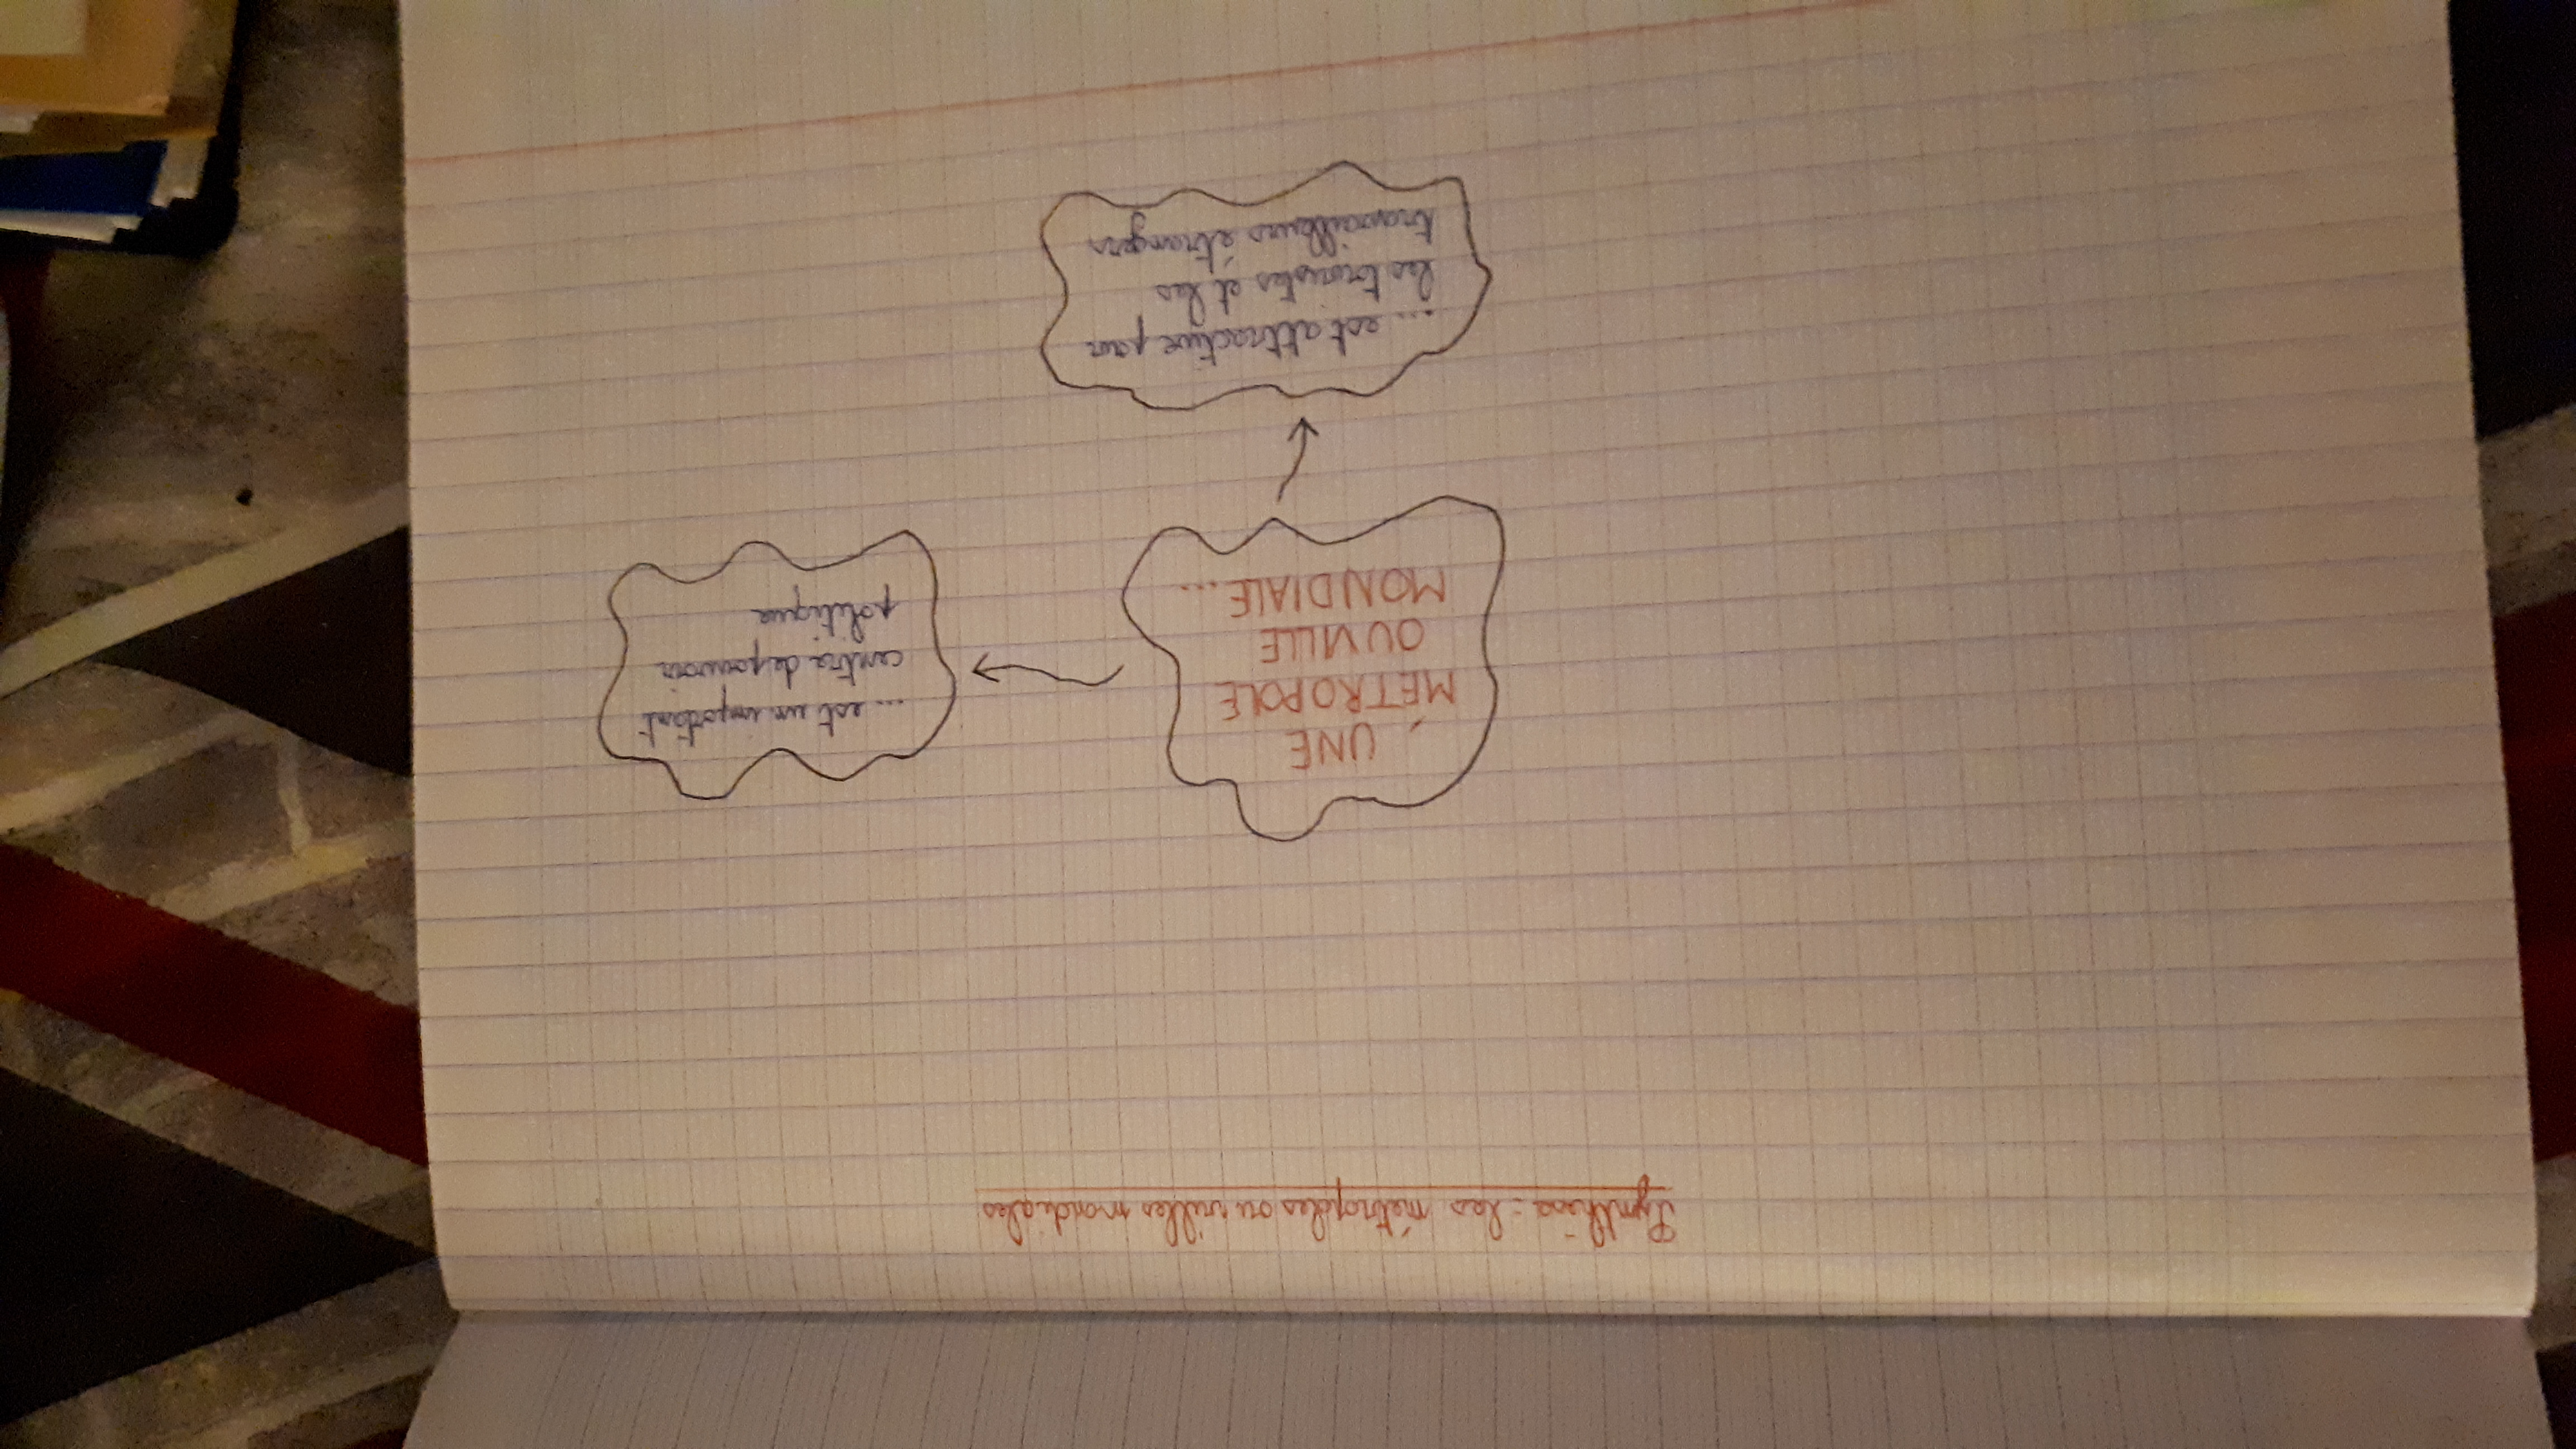 Synthèse : les métropoles ou villes mondiales
UNE
MÉTROPOLE
OU VILLE
MONDIALE...
... est un important
centre de pouvoir
politique
... est attractive pour
les touristes et les
travailleurs étrangers